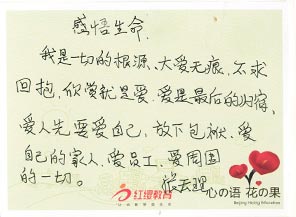 感悟生命.
我是一切的根源、大爱无痕、不求
回抱、欣赏就是爱、爱是最后的归宿、
爱人先要爱自己、放下包袱、爱
自己的家人、爱员工、爱周围
的一切。
红缨教育
心の语 花の果
Beijing HoIng Education